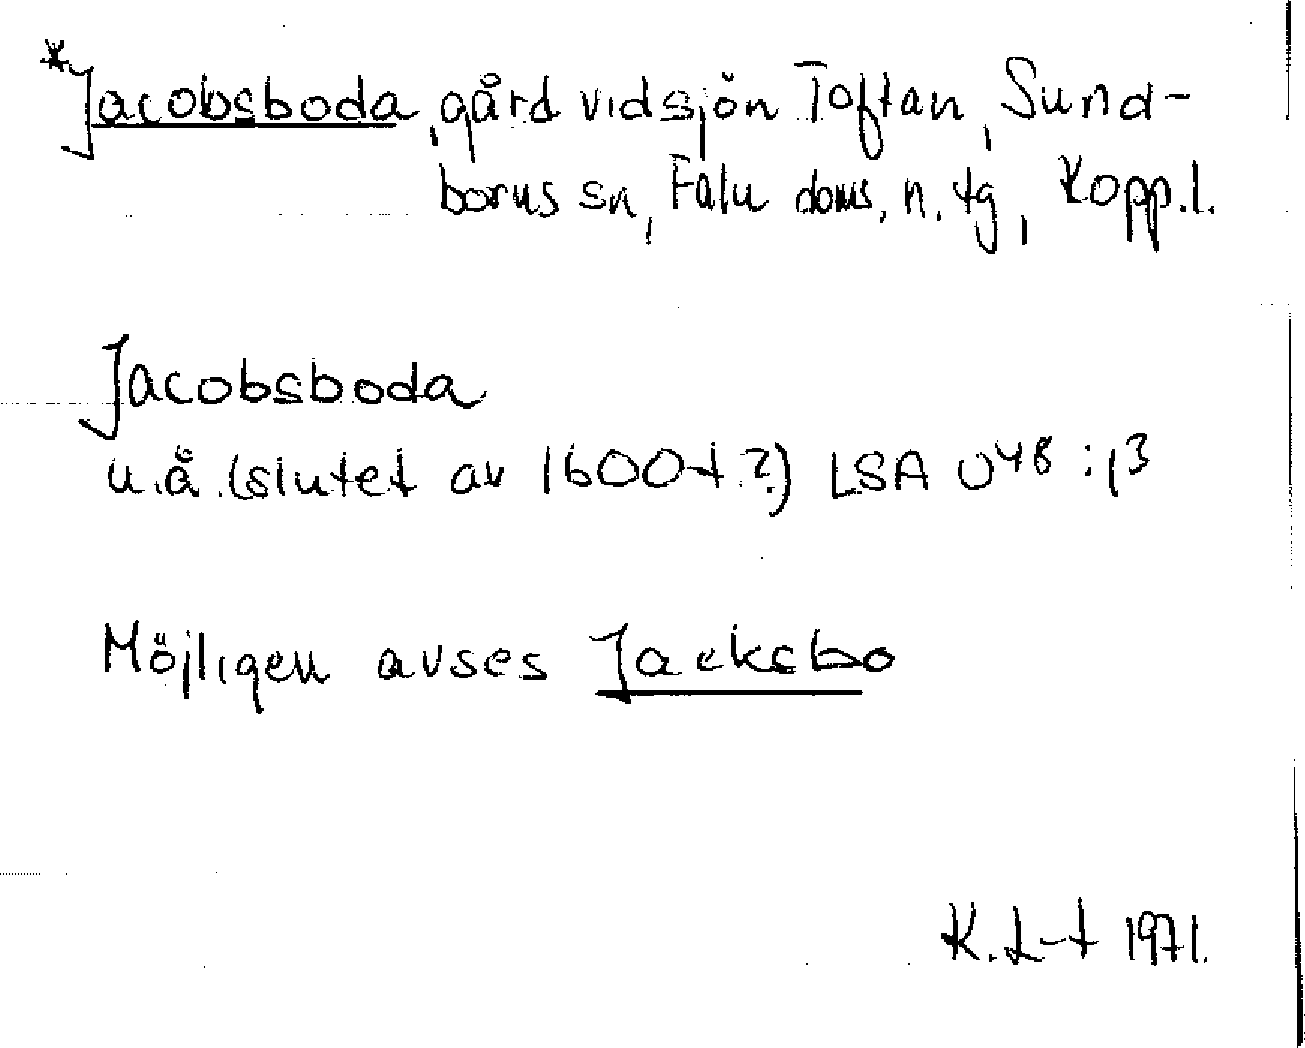 *Jacobsboda, gård vid sjön Toftan, Sund-
borns sn, Falu doms. n. tg, Kopp.l.
Jacobsboda
u.å. (slutet av 1600-t.?) LSA U48:13
Möjligen avses Jacksbo
K.L-t 1971.